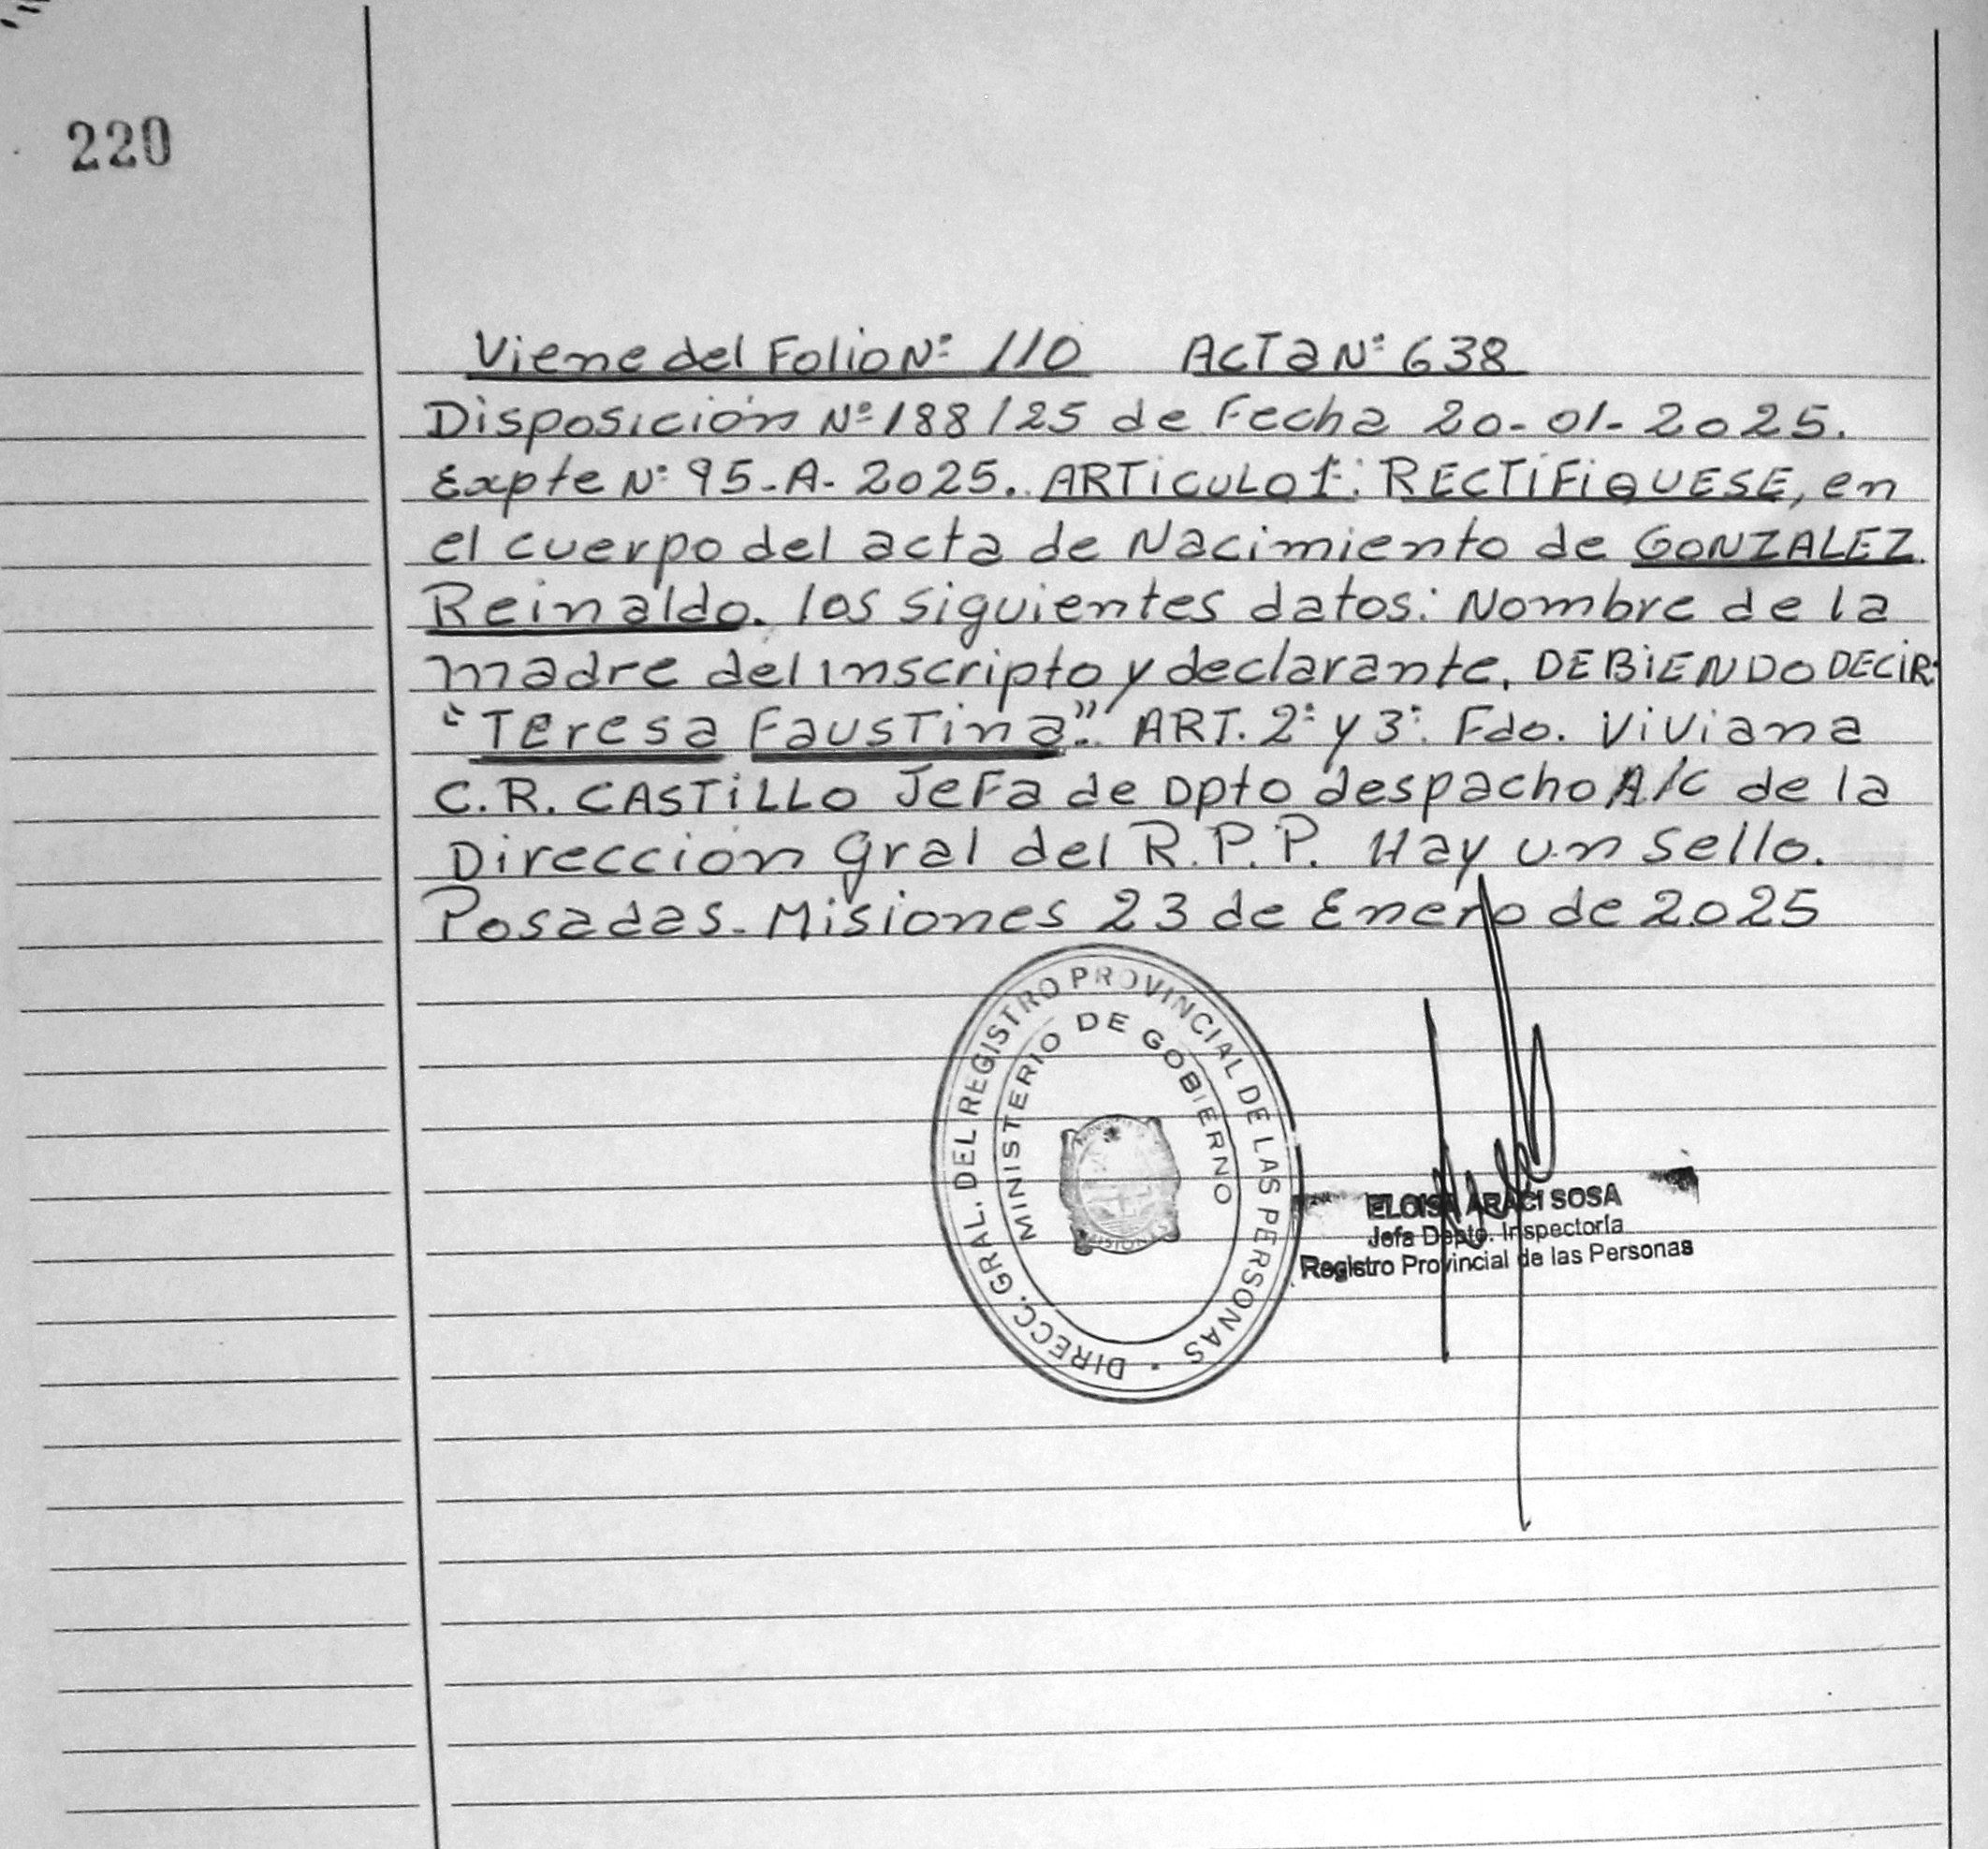 220
Viene del Folio Nº 110 ACTa Nº 638
Disposición Nº 188/25 de Fecha 20-01-2025.
Expte Nº 95-A-2025. ARTiCULO 1º: RECTiFiQUESE, en
el cuerpo del acta de Nacimiento de GONZALEZ
Reinaldo. los siguientes datos: Nombre de la
madre del inscripto y declarante, DEBiENDO DECiR:
"Teresa Faustina". ART. 2º y 3º. Fdo. Viviana
C.R. CASTiLLO Jefa de Dpto despacho A/C de la
Dirección Gral del R.P.P. Hay un sello.
Posadas. Misiones 23 de Enero de 2025
DIRECC. GRAL. DEL REGISTRO PROVINCIAL DE LAS PERSONAS
MINISTERIO DE GOBIERNO
MISIONES
ELOISA ARACI SOSA
Jefa Depto. Inspectoría
Registro Provincial de las Personas